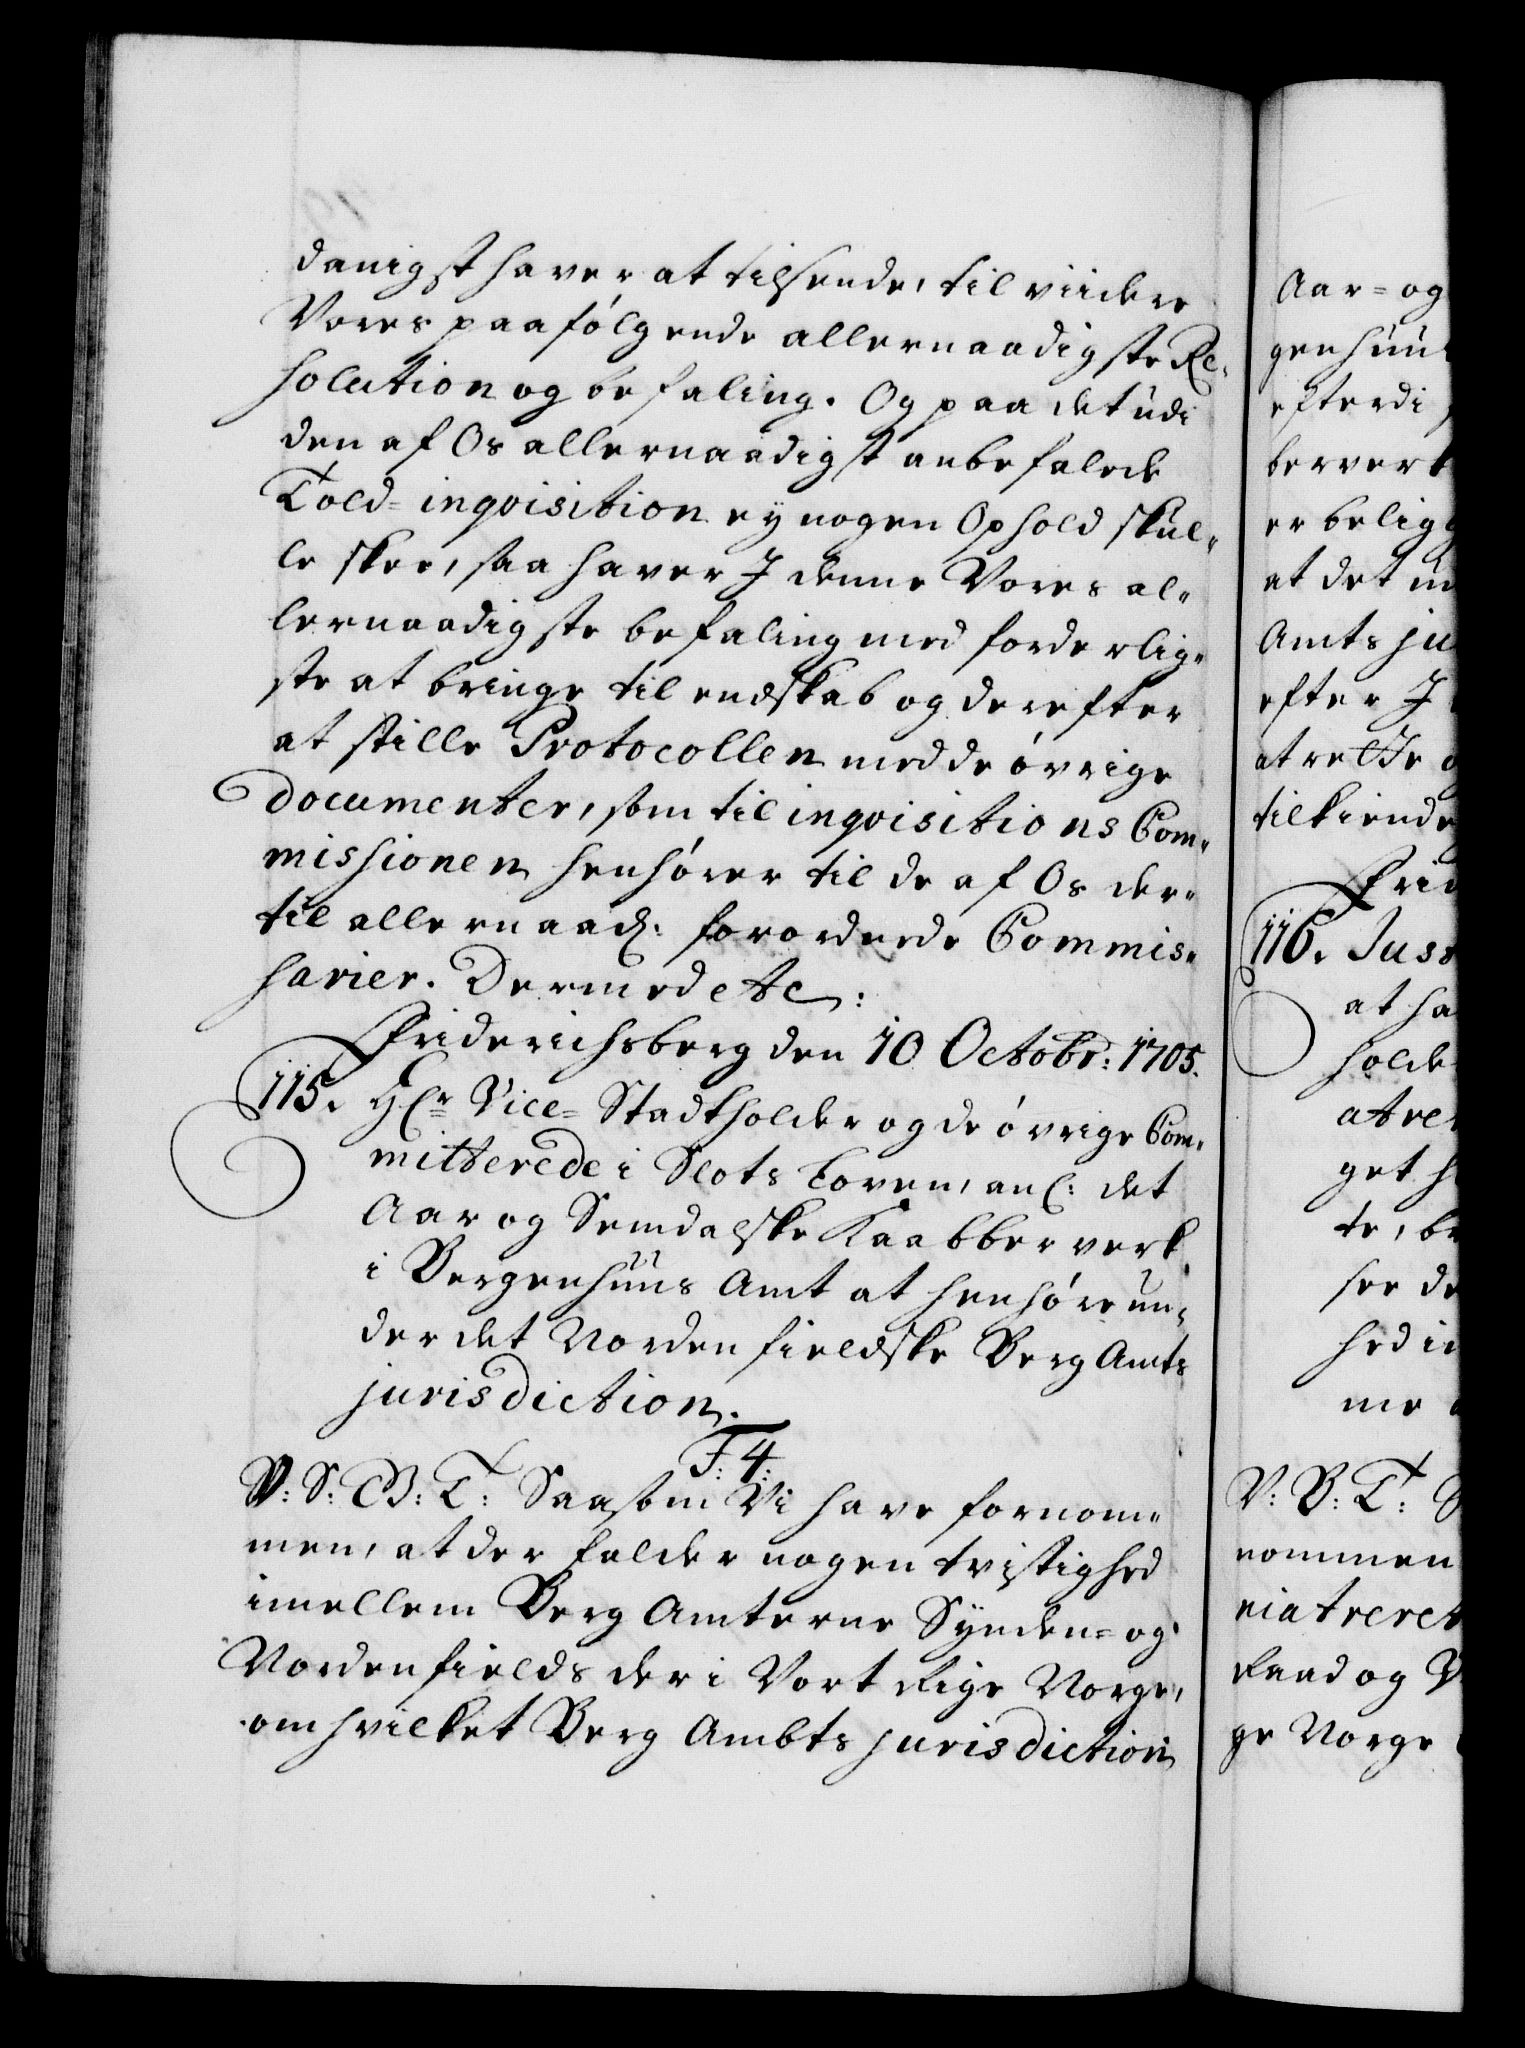 danigst haver at tilsende, til viidere
Vores paafólgende allernaadigste Re-
solution og befaling. Og paa det udi
den af Os allernaadigst anbefalede
Told-inqvisition ey nogen Ophold skul-
le skee, saa haver I denne Vores al-
lernaadigste befaling med forderlig-
ste at bringe til endskab og derefter
at stille Protocollen med de óvrige
Documenter, som til inqvisitions Com-
missionen henhórer til de af Os der-
til allernaad: forordnede Commis-
sarier. Dermed etc:
Friderichsberg den 10 Octobr: 1705.
115. Hr Vice-Stadtholder og de óvrige Com-
mitterede i Slots Loven, anl: det
Aar og Semdalske Kaabberverk
i Bergenhuus Amt at henhóre un-
der det Nordenfieldske Berg Amts
jurisdiction.
F: 4:
V: S: G: T: Saasom Vi have fornom-
men, at der falder nogen tvistighed
imellem Berg Amterne Synden- og
Nordenfields der i Vort Rige Norge,
om hvilket Berg Ambts jurisdiction
Aar- og
genhuu
efterdi
berverk
er belig
at det un
Amts ju
efter I
at rette
tilkiende
Frid
116. Jus
at ha
holde
atre
get h
te, be
see de
hed i
me
V: B: T: S
nommen
niatreret
Raad og V
ge Norge